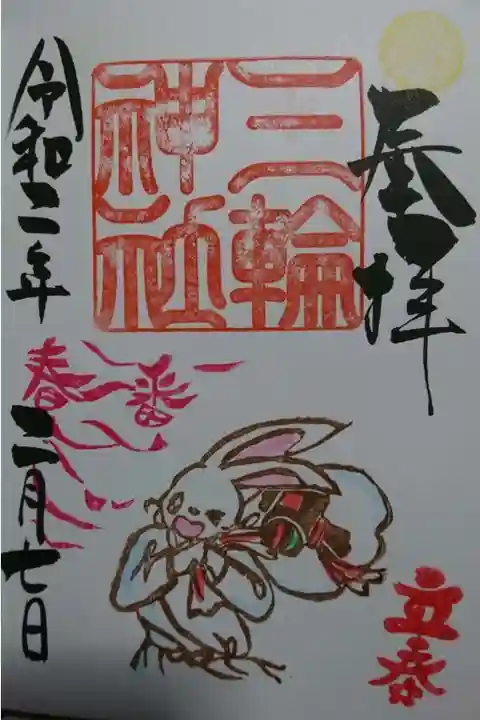 拝
三輪
神社
春一番
立春
令和二年
二月七日